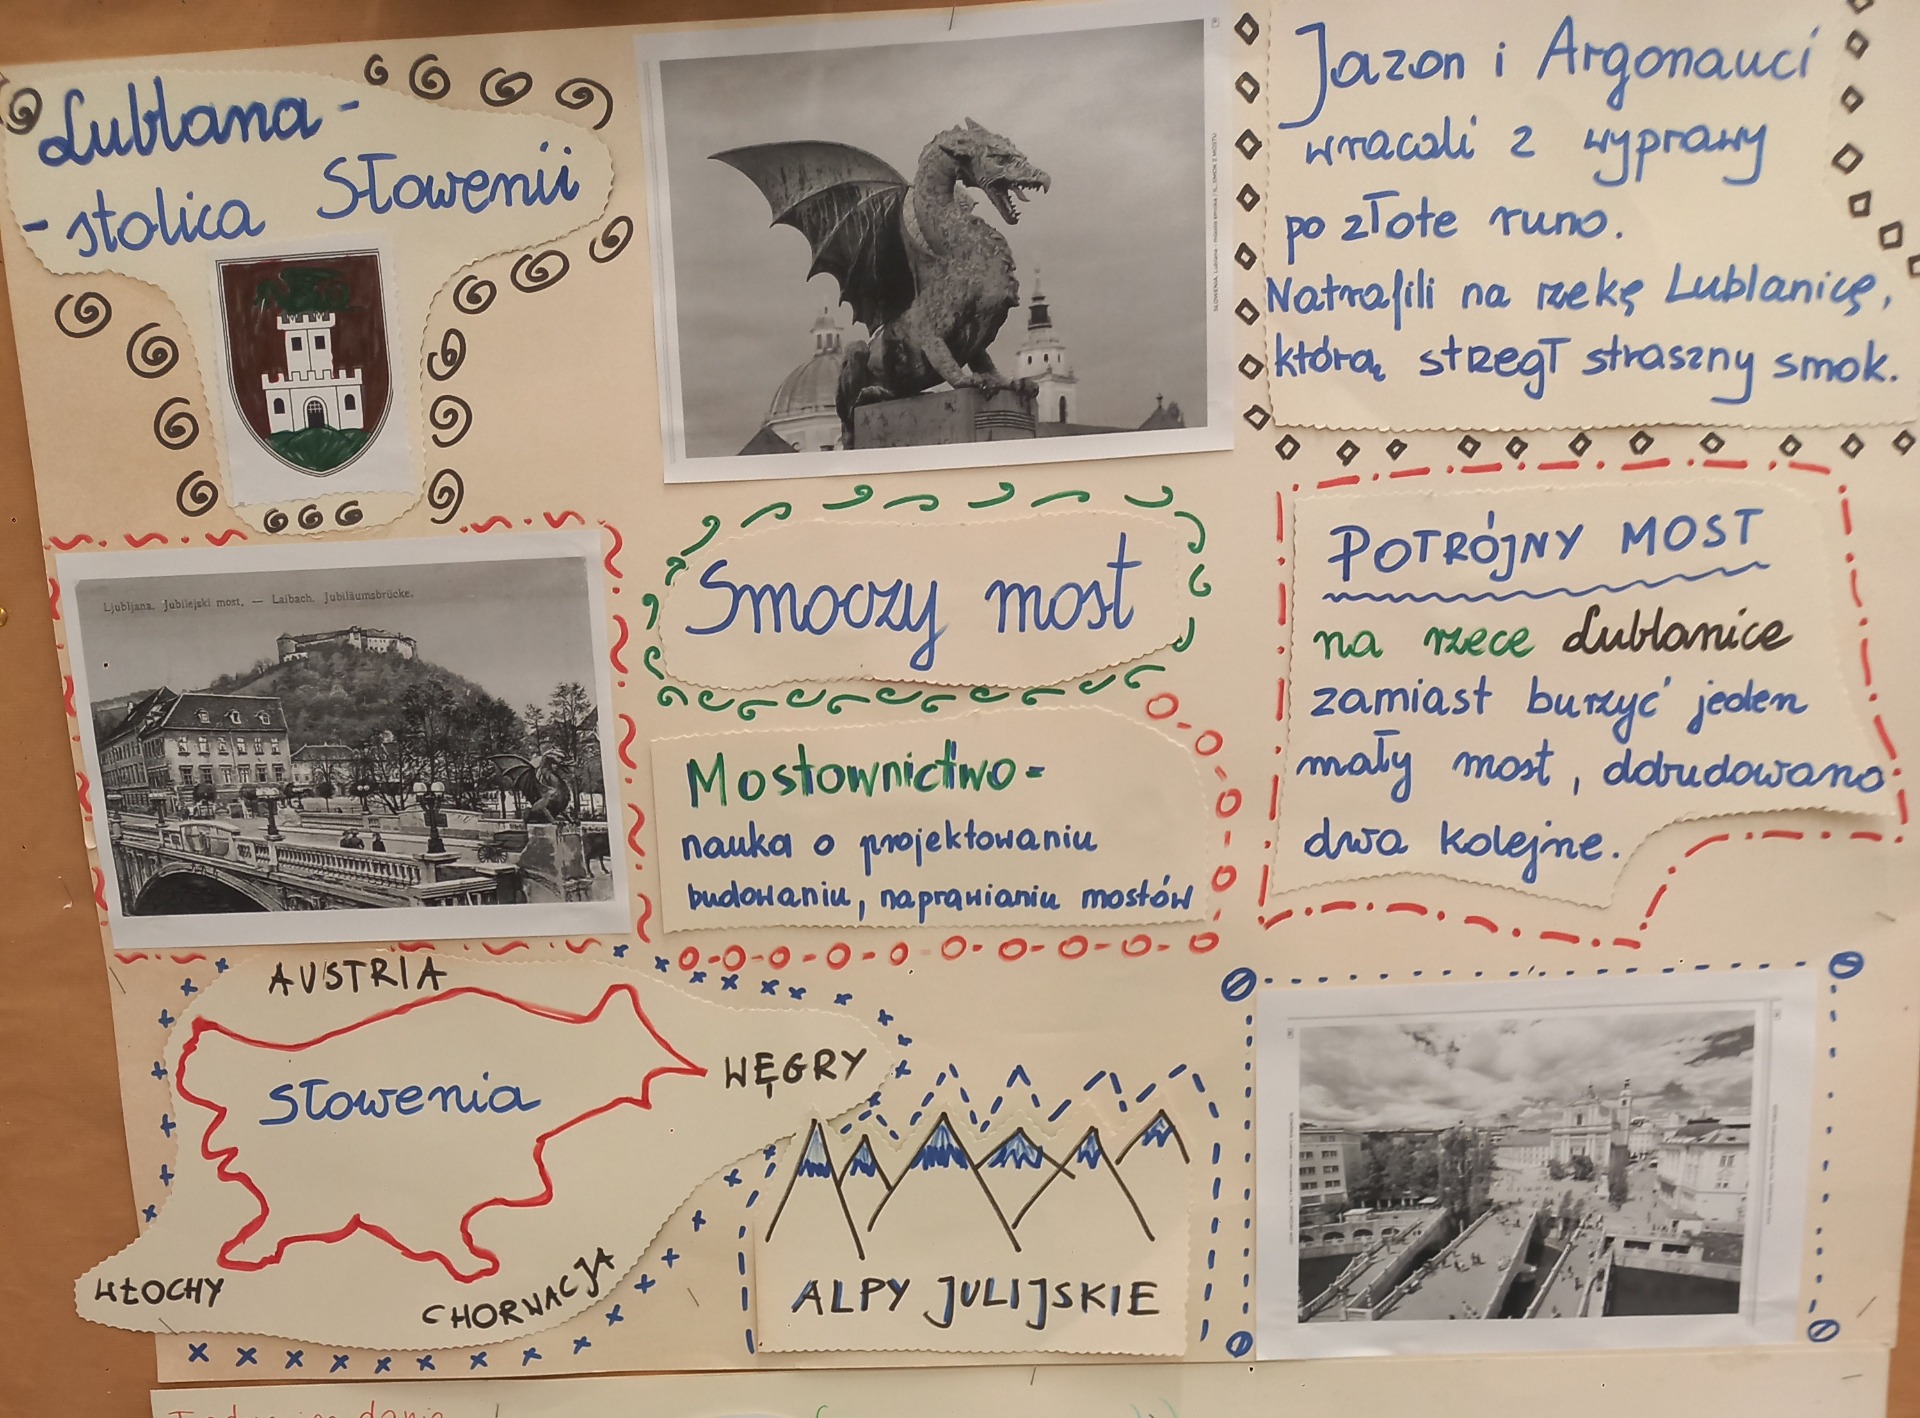 Lublana -
- stolica Słowenii
Jazon i Argonauci
wracali z wyprawy
po złote runo.
Natrafili na rzekę Lublanicę,
którą strzegł straszny smok.
Ljubljana. Jubilejski most. — Laibach. Jubiläumsbrücke.
Smoczy most
Mostownictwo -
nauka o projektowaniu
budowaniu, naprawianiu mostów
POTRÓJNY MOST
na rzece Lublanice
zamiast burzyć jeden
mały most, dobudowano
dwa kolejne.
AUSTRIA
WĘGRY
Słowenia
WŁOCHY
CHORWACJA
ALPY JULIJSKIE